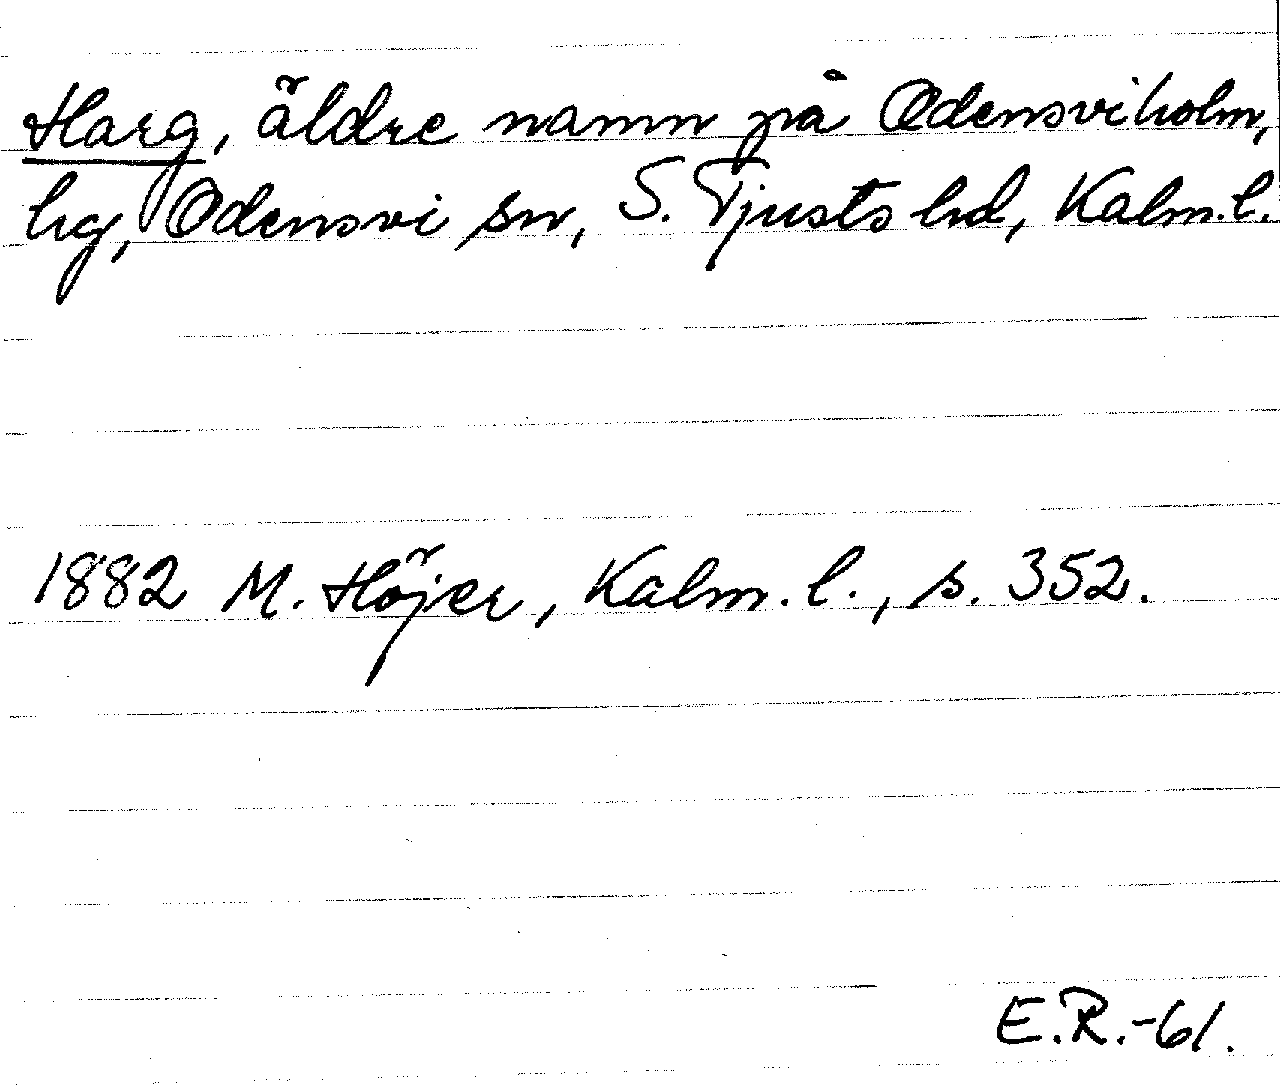 Harg, äldre namn på Odensviholm,
hg, Odensvi sn, S. Tjusts hd, Kalm. l.
1882 M. Höjer, Kalm. l., s. 352.
E.R.-61.